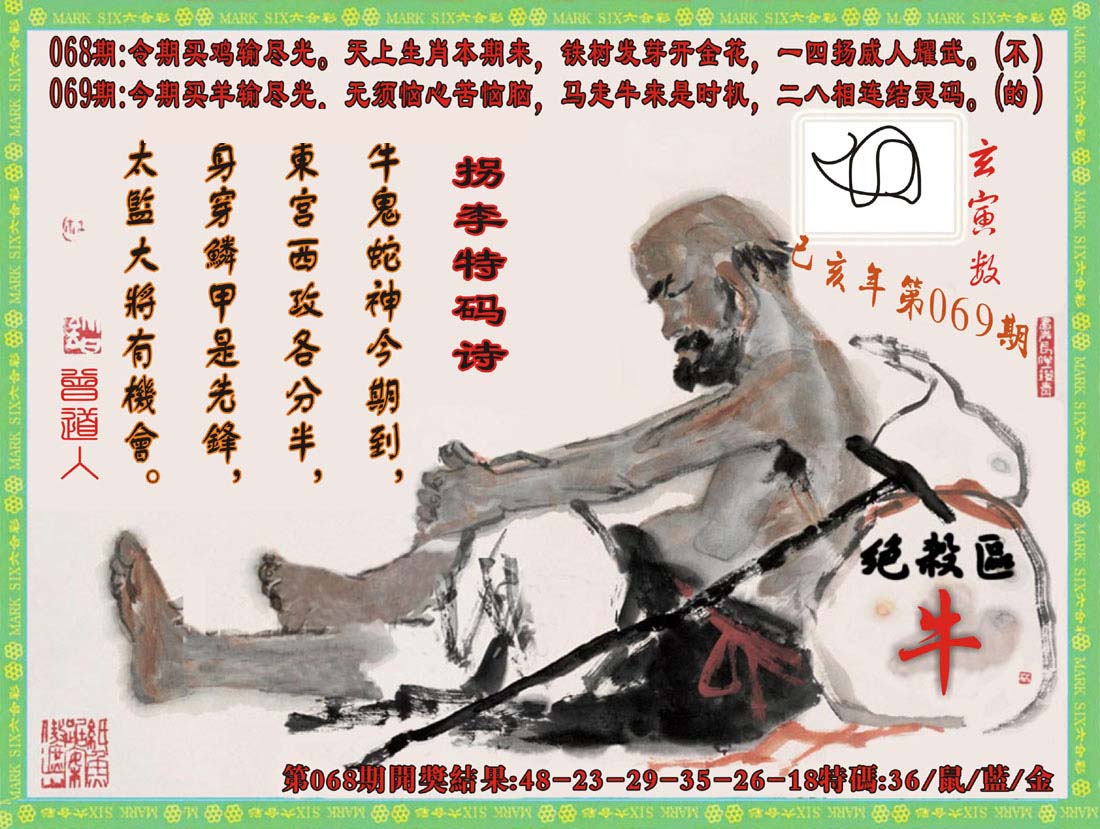 MARK SIX六合彩
068期:令期买鸡输尽光。天上生肖本期来，铁树发芽开金花，一四扬威人耀武。(不)
069期:今期买羊输尽光．无须恼心苦恼脑，马走牛来是时机，二八相连结灵码。(的)
玄寅数
己亥年第069期
拐李特码诗
牛鬼蛇神今期到，
東宫西攻各分半，
身穿鱗甲是先鋒，
太監大將有機會。
曾道人
绝殺區
牛
第068期開獎結果:48-23-29-35-26-18特碼:36/鼠/藍/金